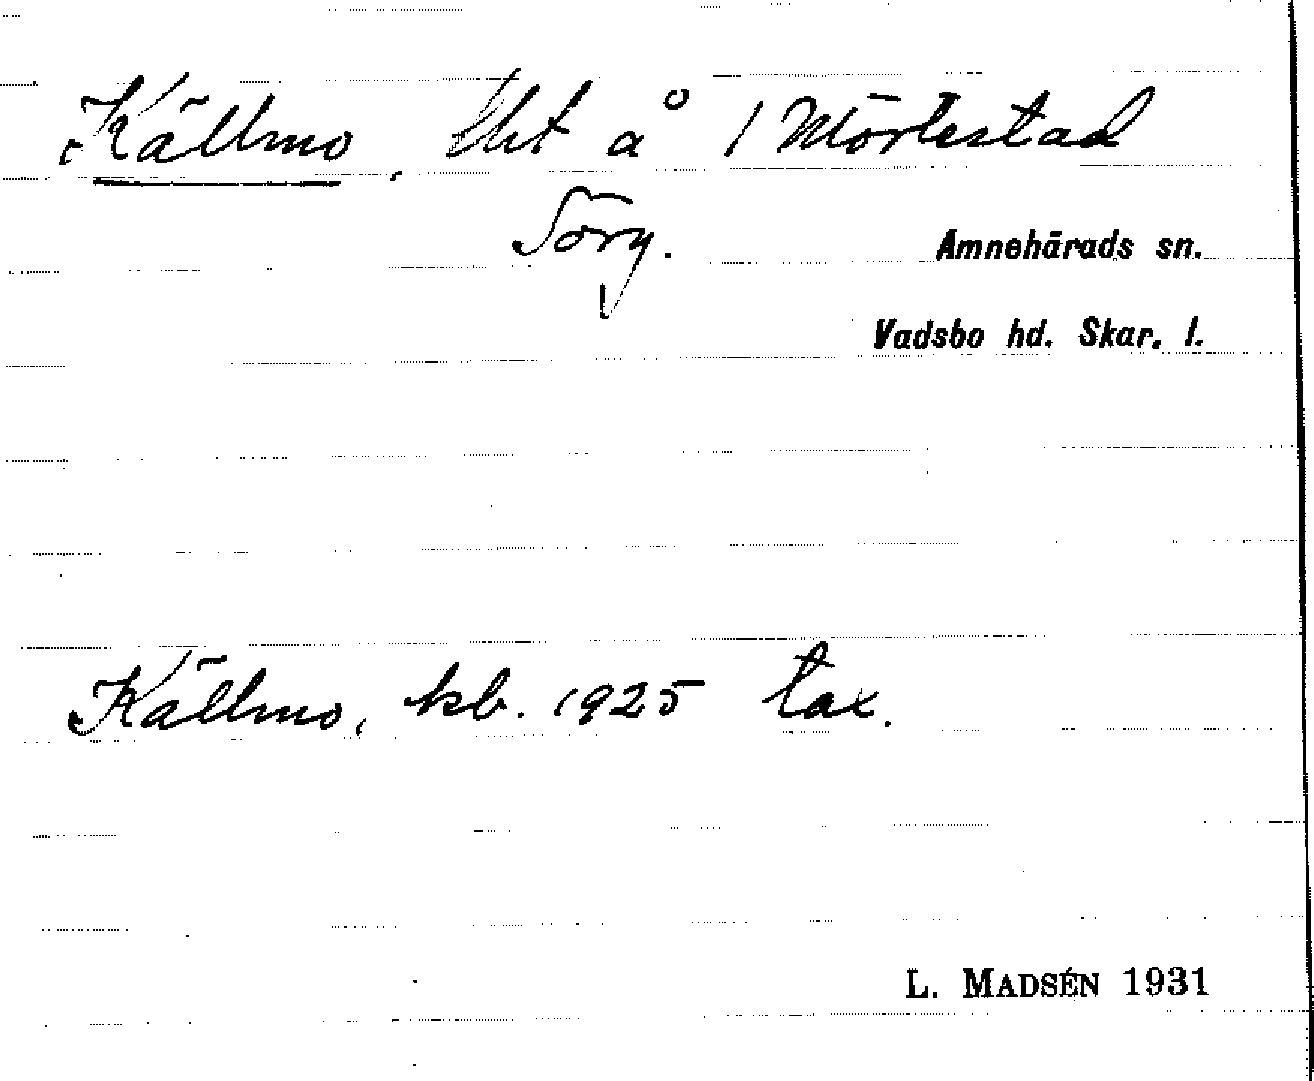 Källmo, lht å 1 Mörtestad
Amnehärads sn.
Vadsbo hd. Skar. l.
Källmo, kb. 1925 tax.
L. MADSÉN 1931